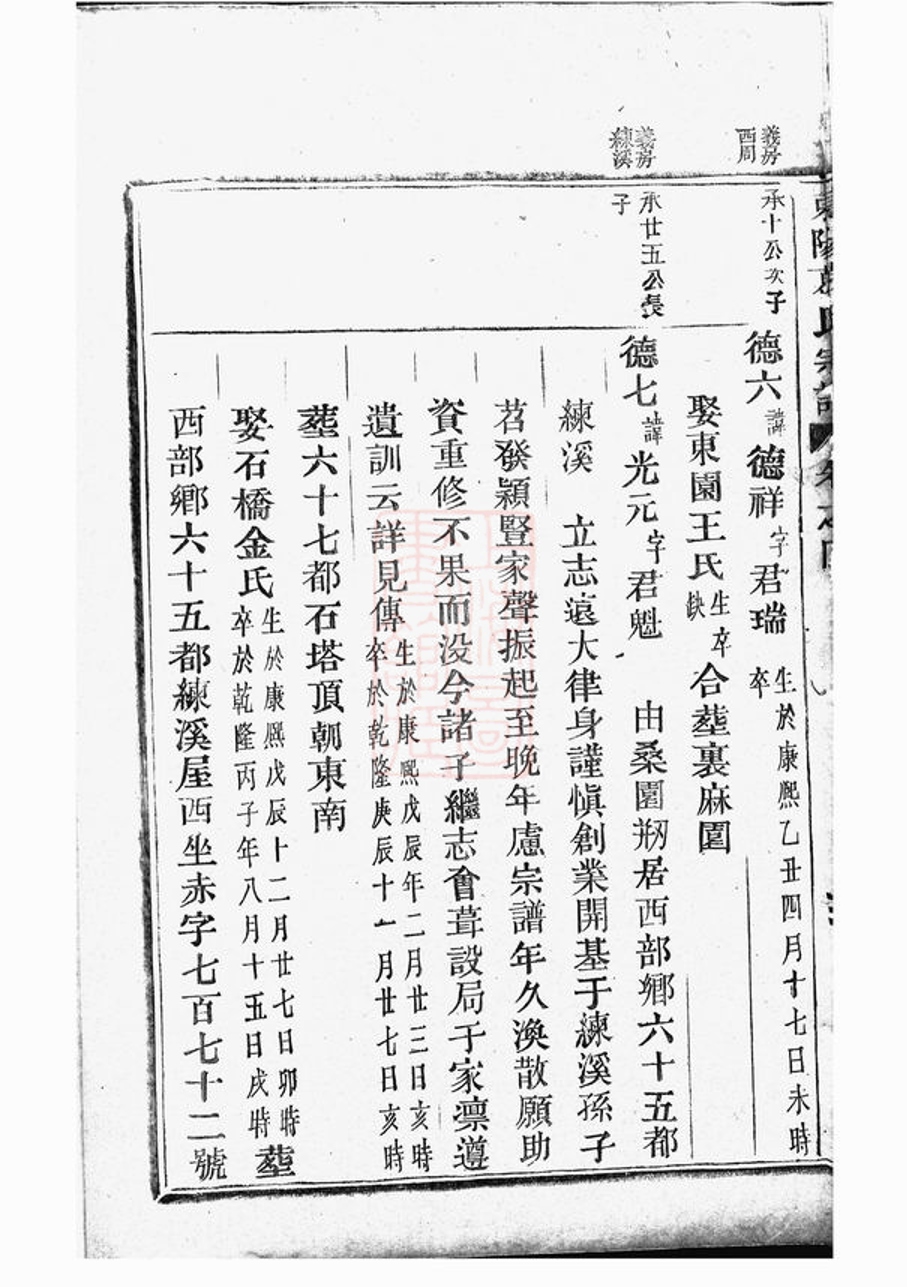 義房
西周
義房
練溪
承十公次子
德六諱德祥字君瑞
生於康熙乙丑四月十七日未時
卒
娶東園王氏
生卒
缺
合塟裏麻園
承廿五公長
子
德七諱光元字君魁 由桑園剏居西部鄉六十五都
練溪 立志遠大律身謹慎創業開基于練溪孫子
苕發穎豎家聲振起至晚年慮宗譜年久渙散願助
資重修不果而没今諸子繼志會葺設局于家凛遵
遺訓云詳見傳
生於康熙戊辰年二月廿三日亥時
卒於乾隆庚辰十一月廿七日亥時
塟六十七都石塔頂朝東南
娶石橋金氏
生於康熙戊辰十二月廿七日卯時
卒於乾隆丙子年八月十五日戌時
塟
西部鄉六十五都練溪屋西坐赤字七百七十二號